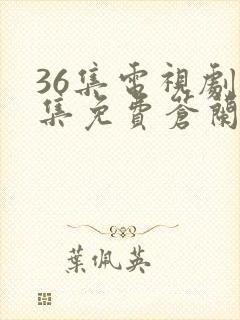 36集電視劇
集免費蒼蘭
葉佩英